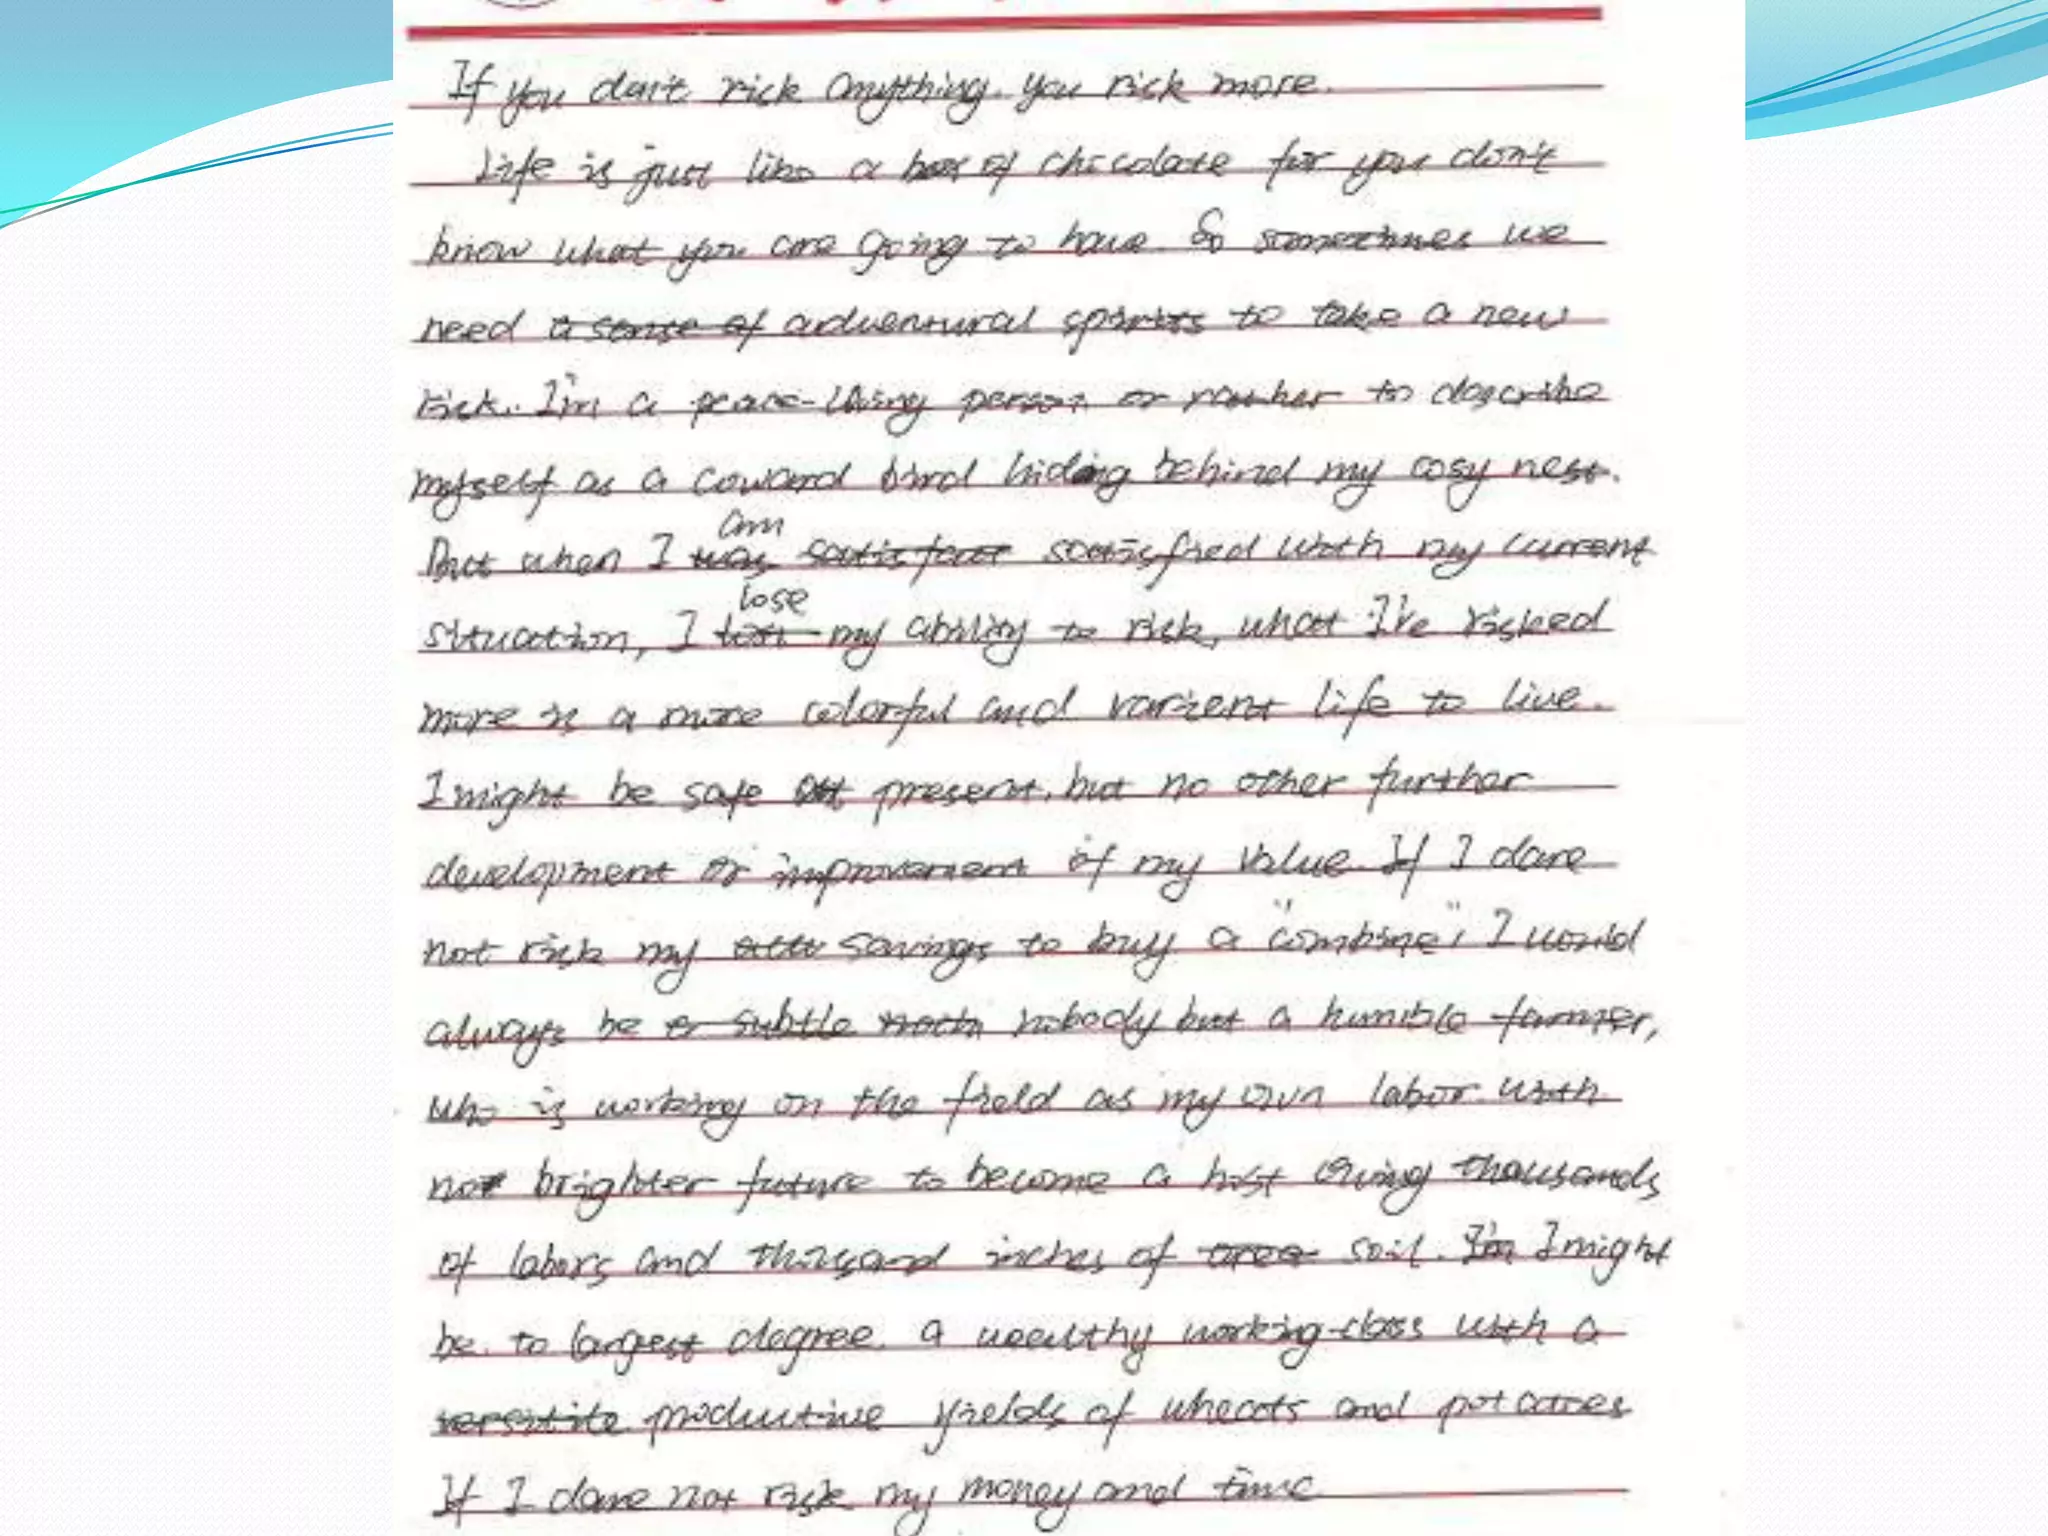 If you don't risk anything. you risk more.
Life is just like a box of chicolate for you don't
know what you are going to have. So sometimes we
need a sense of adventural spirits to take a new
risk. I'm a peace-living person or rather to describe
myself as a coward bird hiding behind my cosy nest.
am
But when I was satisfact satisfied with my current
lose
situation, I lost my ability to risk, what I've risked
more is a more colorful and varient life to live.
I might be safe at present, but no other further
development or improvement of my value. If I dare
not risk my savings to buy a "combine", I would
always be a subtle noth nobody but a humble farmer,
who is working on the field as my own labor with
no brighter future to become a host owing thousands
of labors and thousand inches of area soil. I'm I might
be. to largest degree. a wealthy working-class with a
productive yields of wheats and potatoes
If I dare not risk my money and time